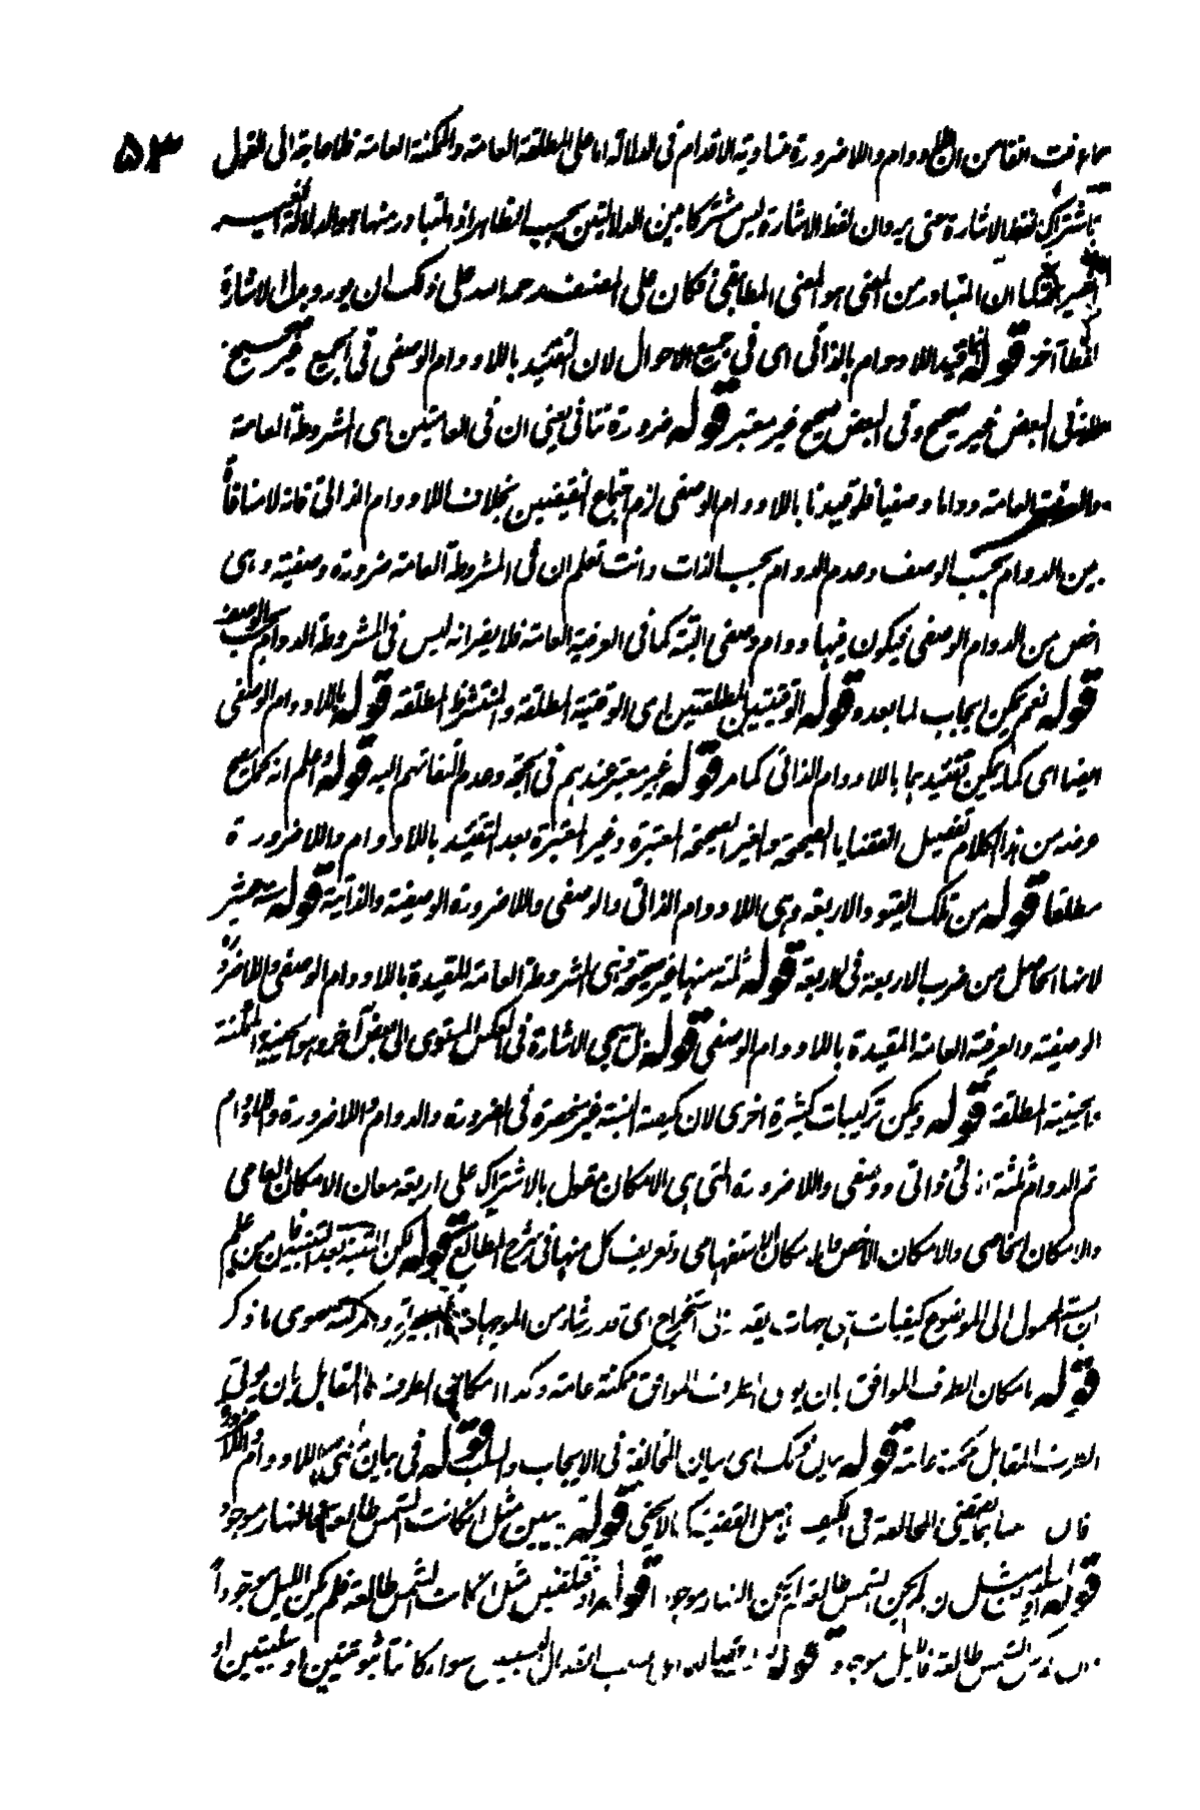 ٥٣
كما عرفت آنفا من ان اللادوام واللاضرورة متساوية الاقدام فى الدلالة اما على المطلقة العامة والممكنة العامة فلا حاجة الى القول
باشتراك لفظ الاشارة حتى يرد ان لفظ الاشارة ليس مشتركا بين الدلالتين بحسب الظاهر اذ المتبادر منها هو الدلالة
كما ان المتبادر من المعنى هو المعنى المطابقى فكان على المصنف رحمه الله على ذلك ان يورد بدل الاشارة
لفظا آخر قوله قيد اللادوام بالذاتى اى فى جميع الاحوال لان التقييد باللادوام الوصفى فى الجميع غير صحيح
فى البعض غير صحيح وفى البعض صحيح غير معتبر قوله ضرورة تنافى يعنى ان فى العامتين اى المشروطة العامة
والعرفية العامة دواما وصفيا فلو قيدنا باللادوام الوصفى لزم اجتماع النقيضين بخلاف اللادوام الذاتى فانه لا منافاة
بين الدوام بحسب الوصف وعدم الدوام بحسب الذات وانت تعلم ان فى المشروطة العامة ضرورة وصفية وهى
اخص من الدوام الوصفى فيكون فيها دوام وصفى البتة كما فى العرفية العامة فلا يضر انه ليس فى المشروطة الدوام بحسب الوصف
قوله نعم يمكن ايجاب لما بعده قوله الوقتيتين المطلقتين اى الوقتية المطلقة والمنتشرة المطلقة قوله باللادوام الوصفى
ايضا اى كما يمكن تقييدها باللادوام الذاتى كما مر قوله غير معتبر عندهم فى الحجة وعدم التفاتهم اليه قوله اعلم انه كما يصح
عرضه من هذا الكلام تفصيل القضايا الصحيحة والغير الصحيحة المعتبرة وغير المعتبرة بعد التقييد باللادوام واللاضرورة
مطلقا قوله من تلك القيود الاربعة وهى اللادوام الذاتى والوصفى واللاضرورة الوصفية والذاتية قوله ستة عشر
لانها الحاصل من ضرب الاربعة فى الاربعة قوله ثلثة منها غير صحيحة وهى المشروطة العامة المقيدة باللادوام الوصفى واللاضرورة
الوصفية والعرفية العامة المقيدة باللادوام الوصفى قوله بل سيجى الاشارة فى العكس المستوى الى بعض آخر وهو الحينية الممكنة
والحينية المطلقة قوله ويمكن تركيبات كثيرة اخرى لان كيفية النسبة غير منحصرة فى الضرورة والدوام واللاضرورة واللادوام
ثم الدوام ثلثة ازلى ذاتى ووصفى واللاضرورة التى هى الامكان مقول بالاشتراك على اربعة معان الامكان العامى
والامكان الخاصى والامكان الاخص والامكان الاستقبالى وتعريف كل منها فى شرح المطالع قوله لكن المتنبه بعد التنبيه من علم
ان نسبة المحمول الى الموضوع كيفيات اى جهات استخراج اى قدر شاء من الموجهات البسيطة والمركبة سوى ما ذكر
قوله بامكان الطرف الموافق بان يكون الطرف الموافق ممكنة عامة وكذا امكان الطرف المقابل بان يؤتى
الطرف المقابل ممكنة عامة قوله بيان ذلك اى بيان المخالفة فى الايجاب والسلب قوله فى بيان معنى اللادوام واللاضرورة
فان يقتضى المخالفة فى الكيف لاصل القضية كما لا يخفى قوله بين مثل ان كانت الشمس طالعة فالنهار موجود
قوله او سلبيتين مثل ان لم يكن الشمس طالعة لم يكن النهار موجودا قوله او مختلفتين مثل ان كانت الشمس طالعة فلم يكن الليل موجودا
الشمس طالعة فالليل موجود قوله سواء كانتا ثبوتيتين او سلبيتين او